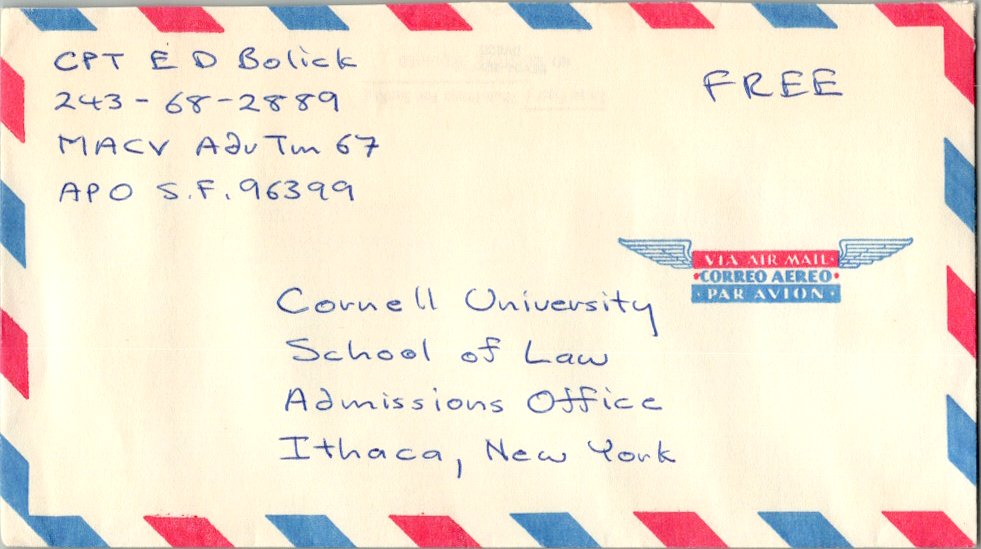 CPT E D Bolick
243-68-2889
MACV Adv Tm 67
APO S.F. 96399
FREE
VIA AIR MAIL
CORREO AEREO
PAR AVION
Cornell University
School of Law
Admissions Office
Ithaca, New York